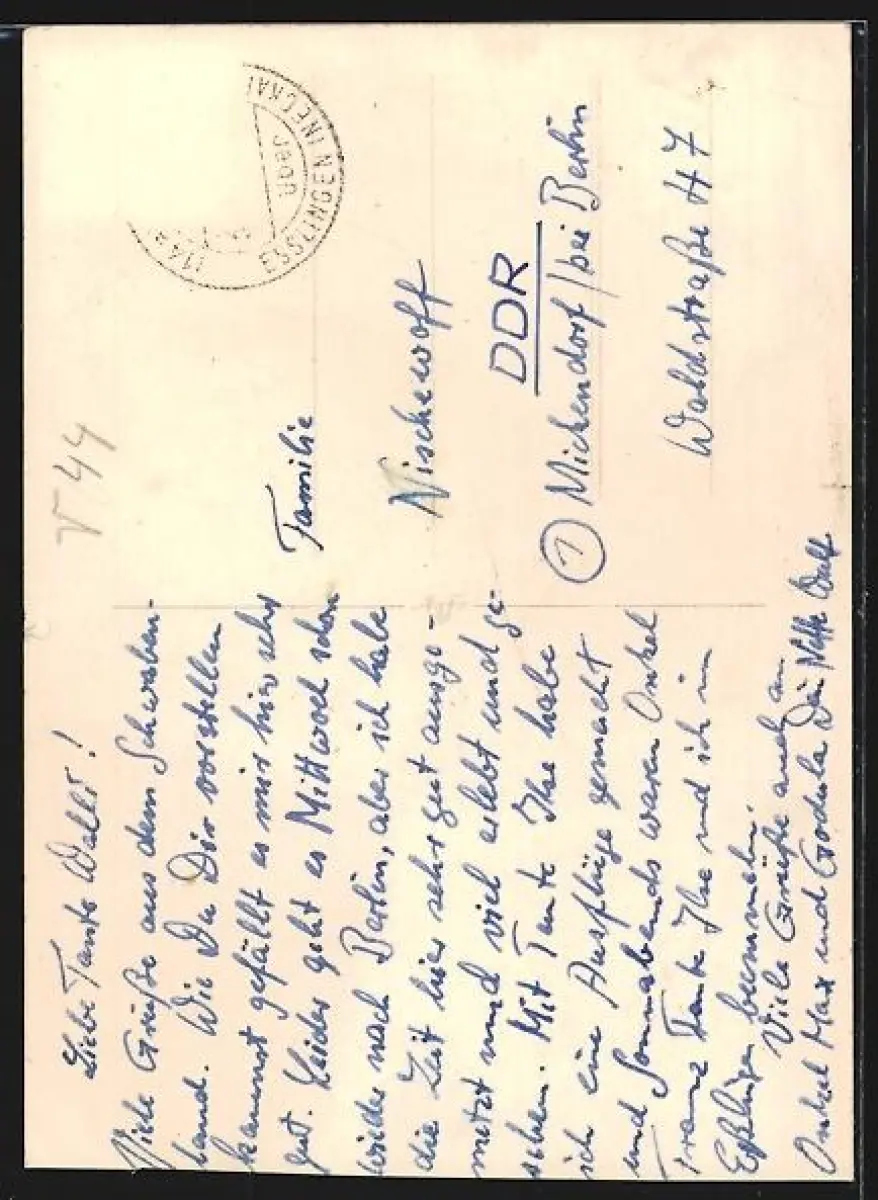 Liebe Tante Walli!
Viele Grüße aus dem Schwaben-
land. Wie Du Dir vorstellen
kannst gefällt es mir hier sehr
gut. Leider geht es Mittwoch schon
wieder nach Berlin, aber ich habe
die Zeit hier sehr gut ausge-
nutzt und viel erlebt und ge-
sehen. Mit Tante Ilse habe
ich eine Ausflüge gemacht
und Sonnabends waren Onkel
Franz Tante Ilse und ich in
Eßlingen bummeln.
Viele Grüße auch an
Onkel Max und Godula Dein Neffe
V 44
ESSLINGEN (NECKAR
114a
Familie
Nischewoff
DDR
1 Michendorf / bei Berlin
Waldstraße 47